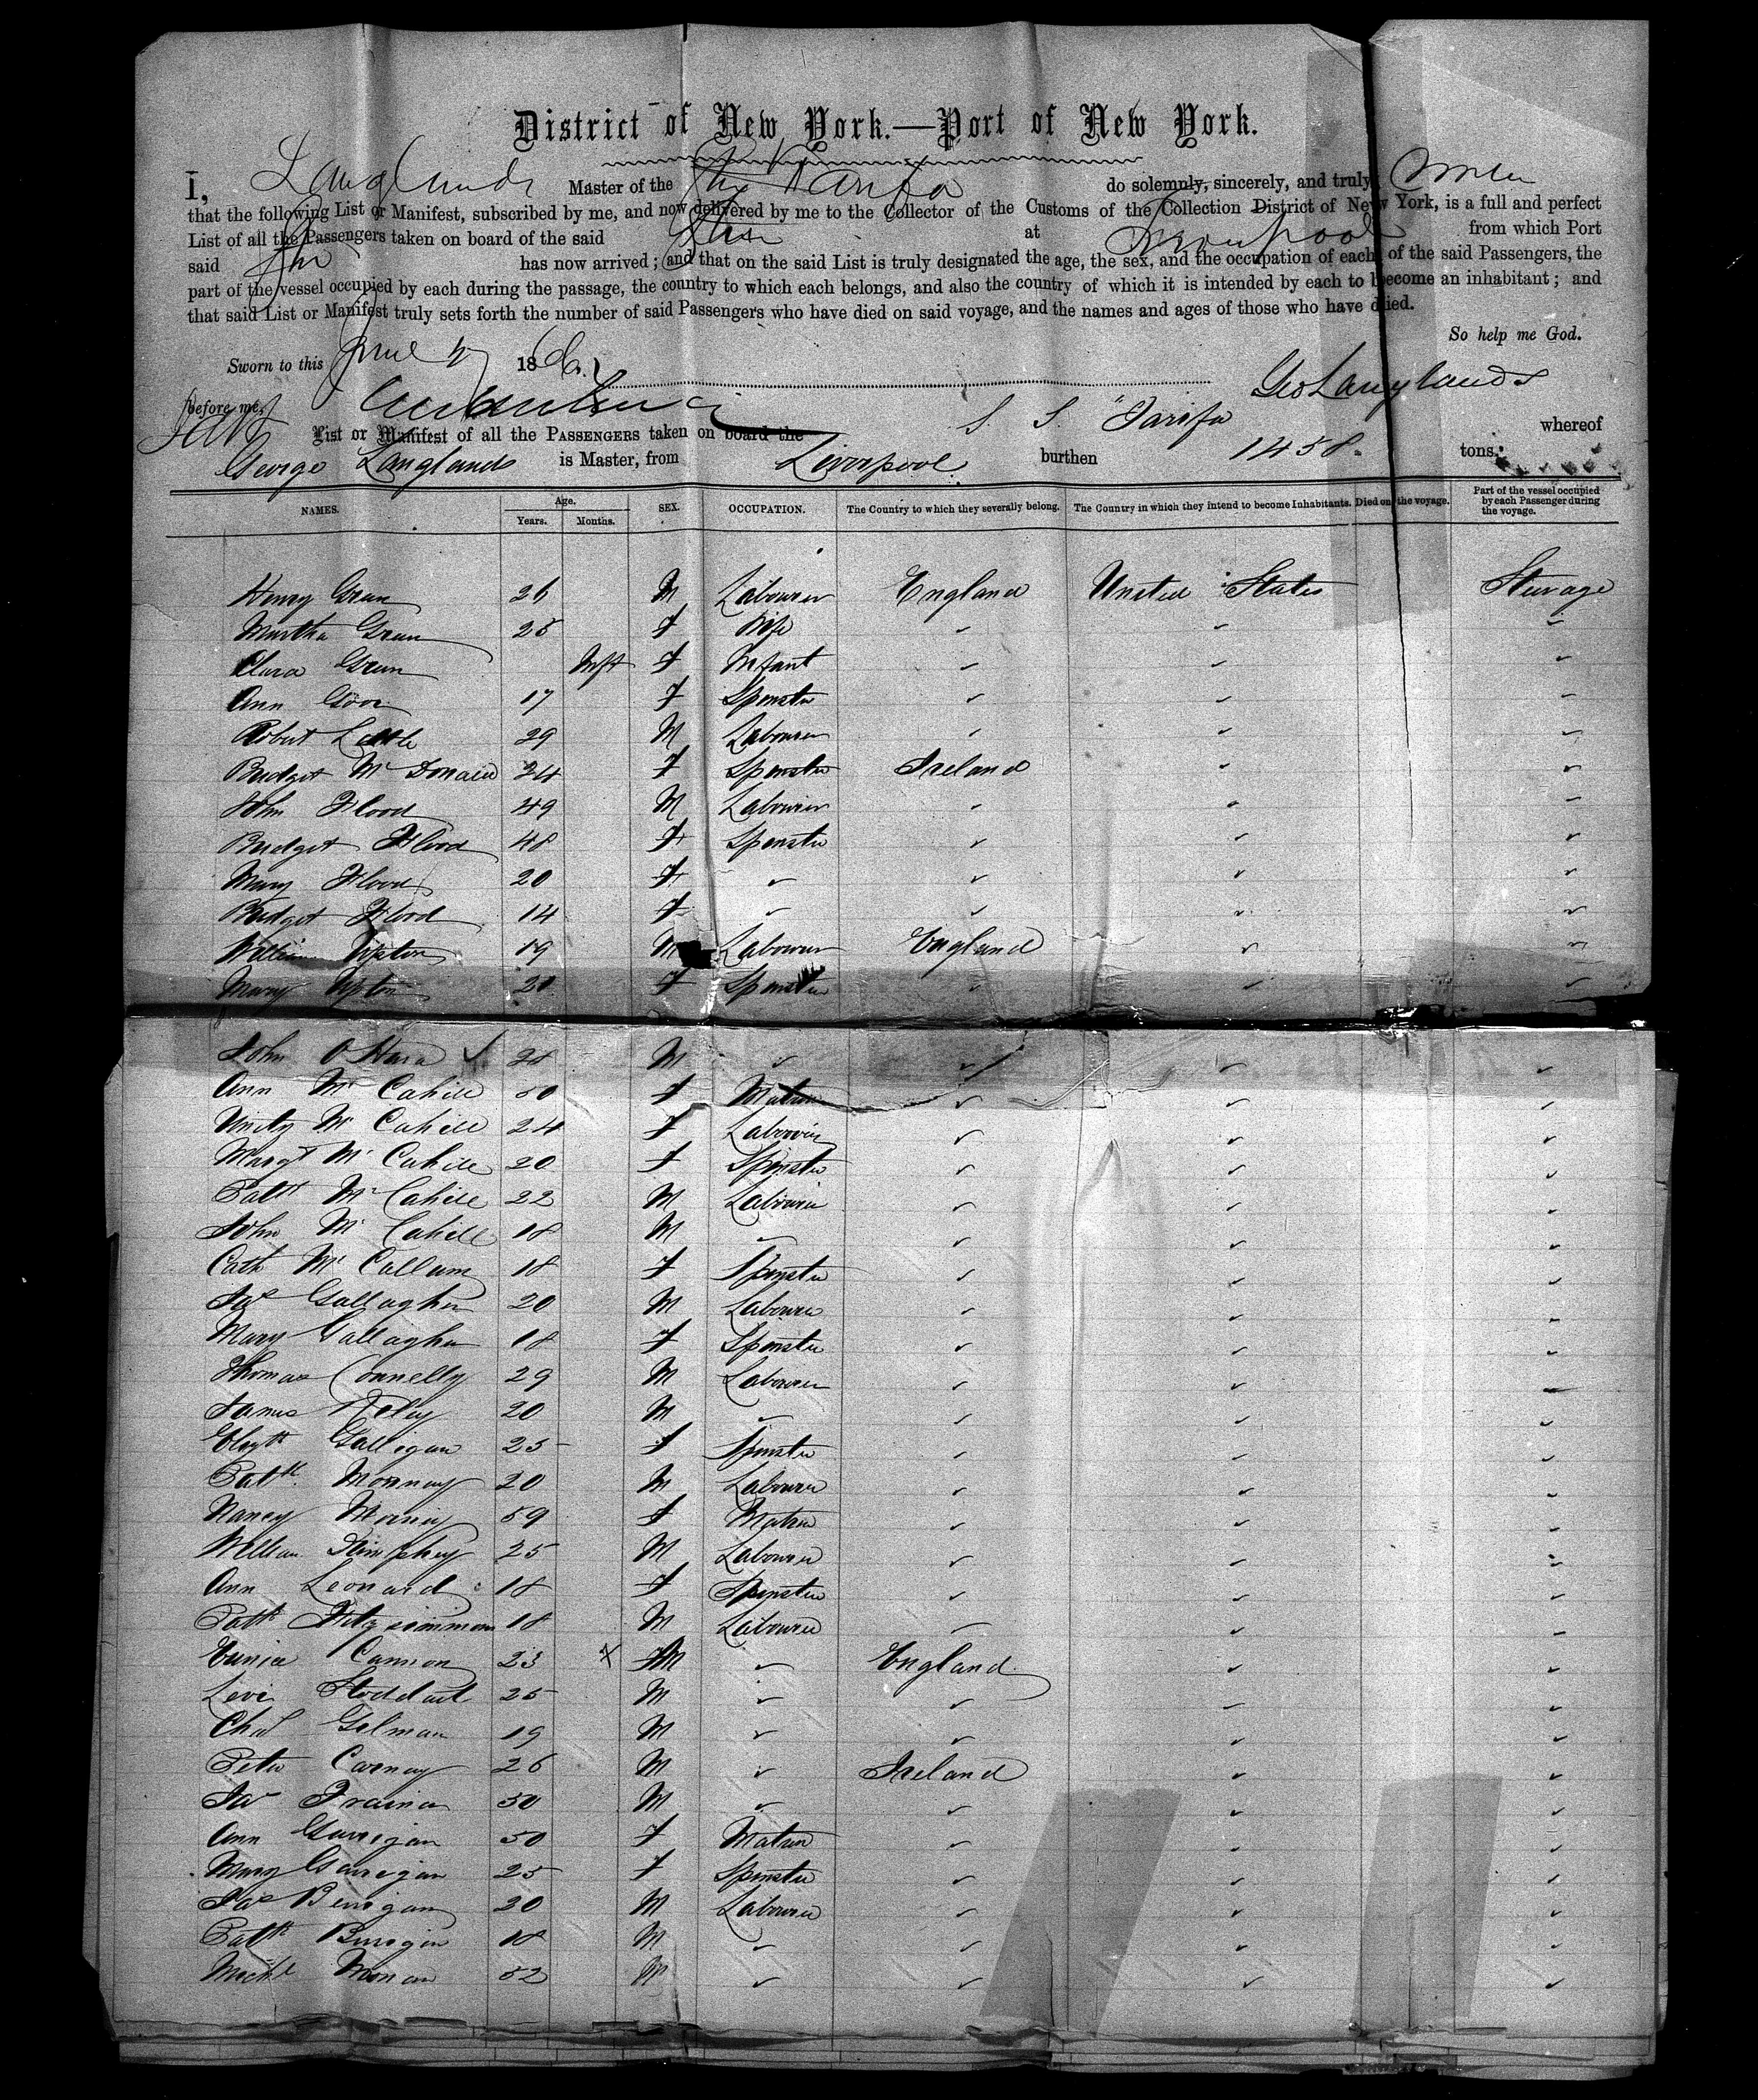 District of New York.—Port of New York.
I, Langlands Master of the Ship Tarifa do solemnly, sincerely, and truly
that the following List or Manifest, subscribed by me, and now delivered by me to the Collector of the Customs of the Collection District of New York, is a full and perfect
List of all the Passengers taken on board of the said at Liverpool from which Port
said has now arrived; and that on the said List is truly designated the age, the sex, and the occupation of each of the said Passengers, the
part of the vessel occupied by each during the passage, the country to which each belongs, and also the country of which it is intended by each to become an inhabitant; and
that said List or Manifest truly sets forth the number of said Passengers who have died on said voyage, and the names and ages of those who have died.
So help me God.
Sworn to this June 186
Geo Langlands
before me,
List or Manifest of all the PASSENGERS taken on board the S. S. "Tarifa whereof
George Langlands is Master, from Liverpool. burthen 1458. tons.
NAMES. Age. Years. Months. SEX. OCCUPATION. The Country to which they severally belong. The Country in which they intend to become Inhabitants. Died on the voyage. Part of the vessel occupied by each Passenger during the voyage.
Henry Green 26 M Labourer England United States Steerage
Martha Green 25 F Wife
Clara Green Inft F Infant
Ann 17 F Spinster
Robert Little 29 M Labourer
Bridget McDonald 24 F Spinster Ireland
John Flood 49 M Labourer
Bridget Flood 48 F Spinster
Mary Flood 20 F
Bridget Flood 14 F
William Upton 19 M Labourer England
Mary Upton 20 F Spinster
John O Hara M
Ann McCahill 50 F Matron
Unity McCahill 24 F Labourer
Margt McCahill 20 F Spinster
Patk McCahill 22 M Labourer
John McCahill 18 M
Cath McCallum 18 F Spinster
Jas Gallagher 20 M Labourer
Mary Gallagher 18 F Spinster
Thomas Connelly 29 M Labourer
James 20 M
Elizth Galligan 25 F Spinster
Patk 20 M Labourer
Nancy 59 F Matron
William 25 M Labourer
Ann Leonard 18 F Spinster
Patk Fitzsimmons 18 M Labourer
Eunice Cannon 23 X M England
Levi Stoddart 25 M
Chas Gelman 19 M
Peter Carney 26 M Ireland
Jas M
Ann Garrigan 50 F Matron
Mary Garrigan 25 F Spinster
Jas Berrigan 20 M Labourer
Patk Berrigan 18 M
Michl 52 M